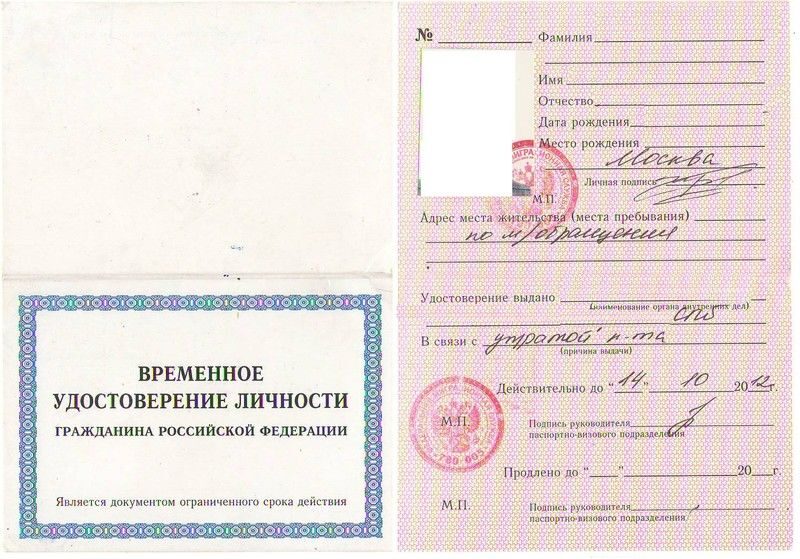 ВРЕМЕННОЕ
УДОСТОВЕРЕНИЕ ЛИЧНОСТИ
ГРАЖДАНИНА РОССИЙСКОЙ ФЕДЕРАЦИИ
Является документом ограниченного срока действия
№
Фамилия
Имя
Отчество
Дата рождения
Место рождения
Москва
Личная подпись
М.П.
Адрес места жительства (места пребывания)
по м/обращения
Удостоверение выдано
(наименование органа внутренних дел)
СПб
В связи с утратой п-та
(причина выдачи)
Действительно до "14" 10 2012г.
М.П.
Подпись руководителя
паспортно-визового подразделения
780-005
Продлено до "__" 20__г.
М.П.
Подпись руководителя
паспортно-визового подразделения